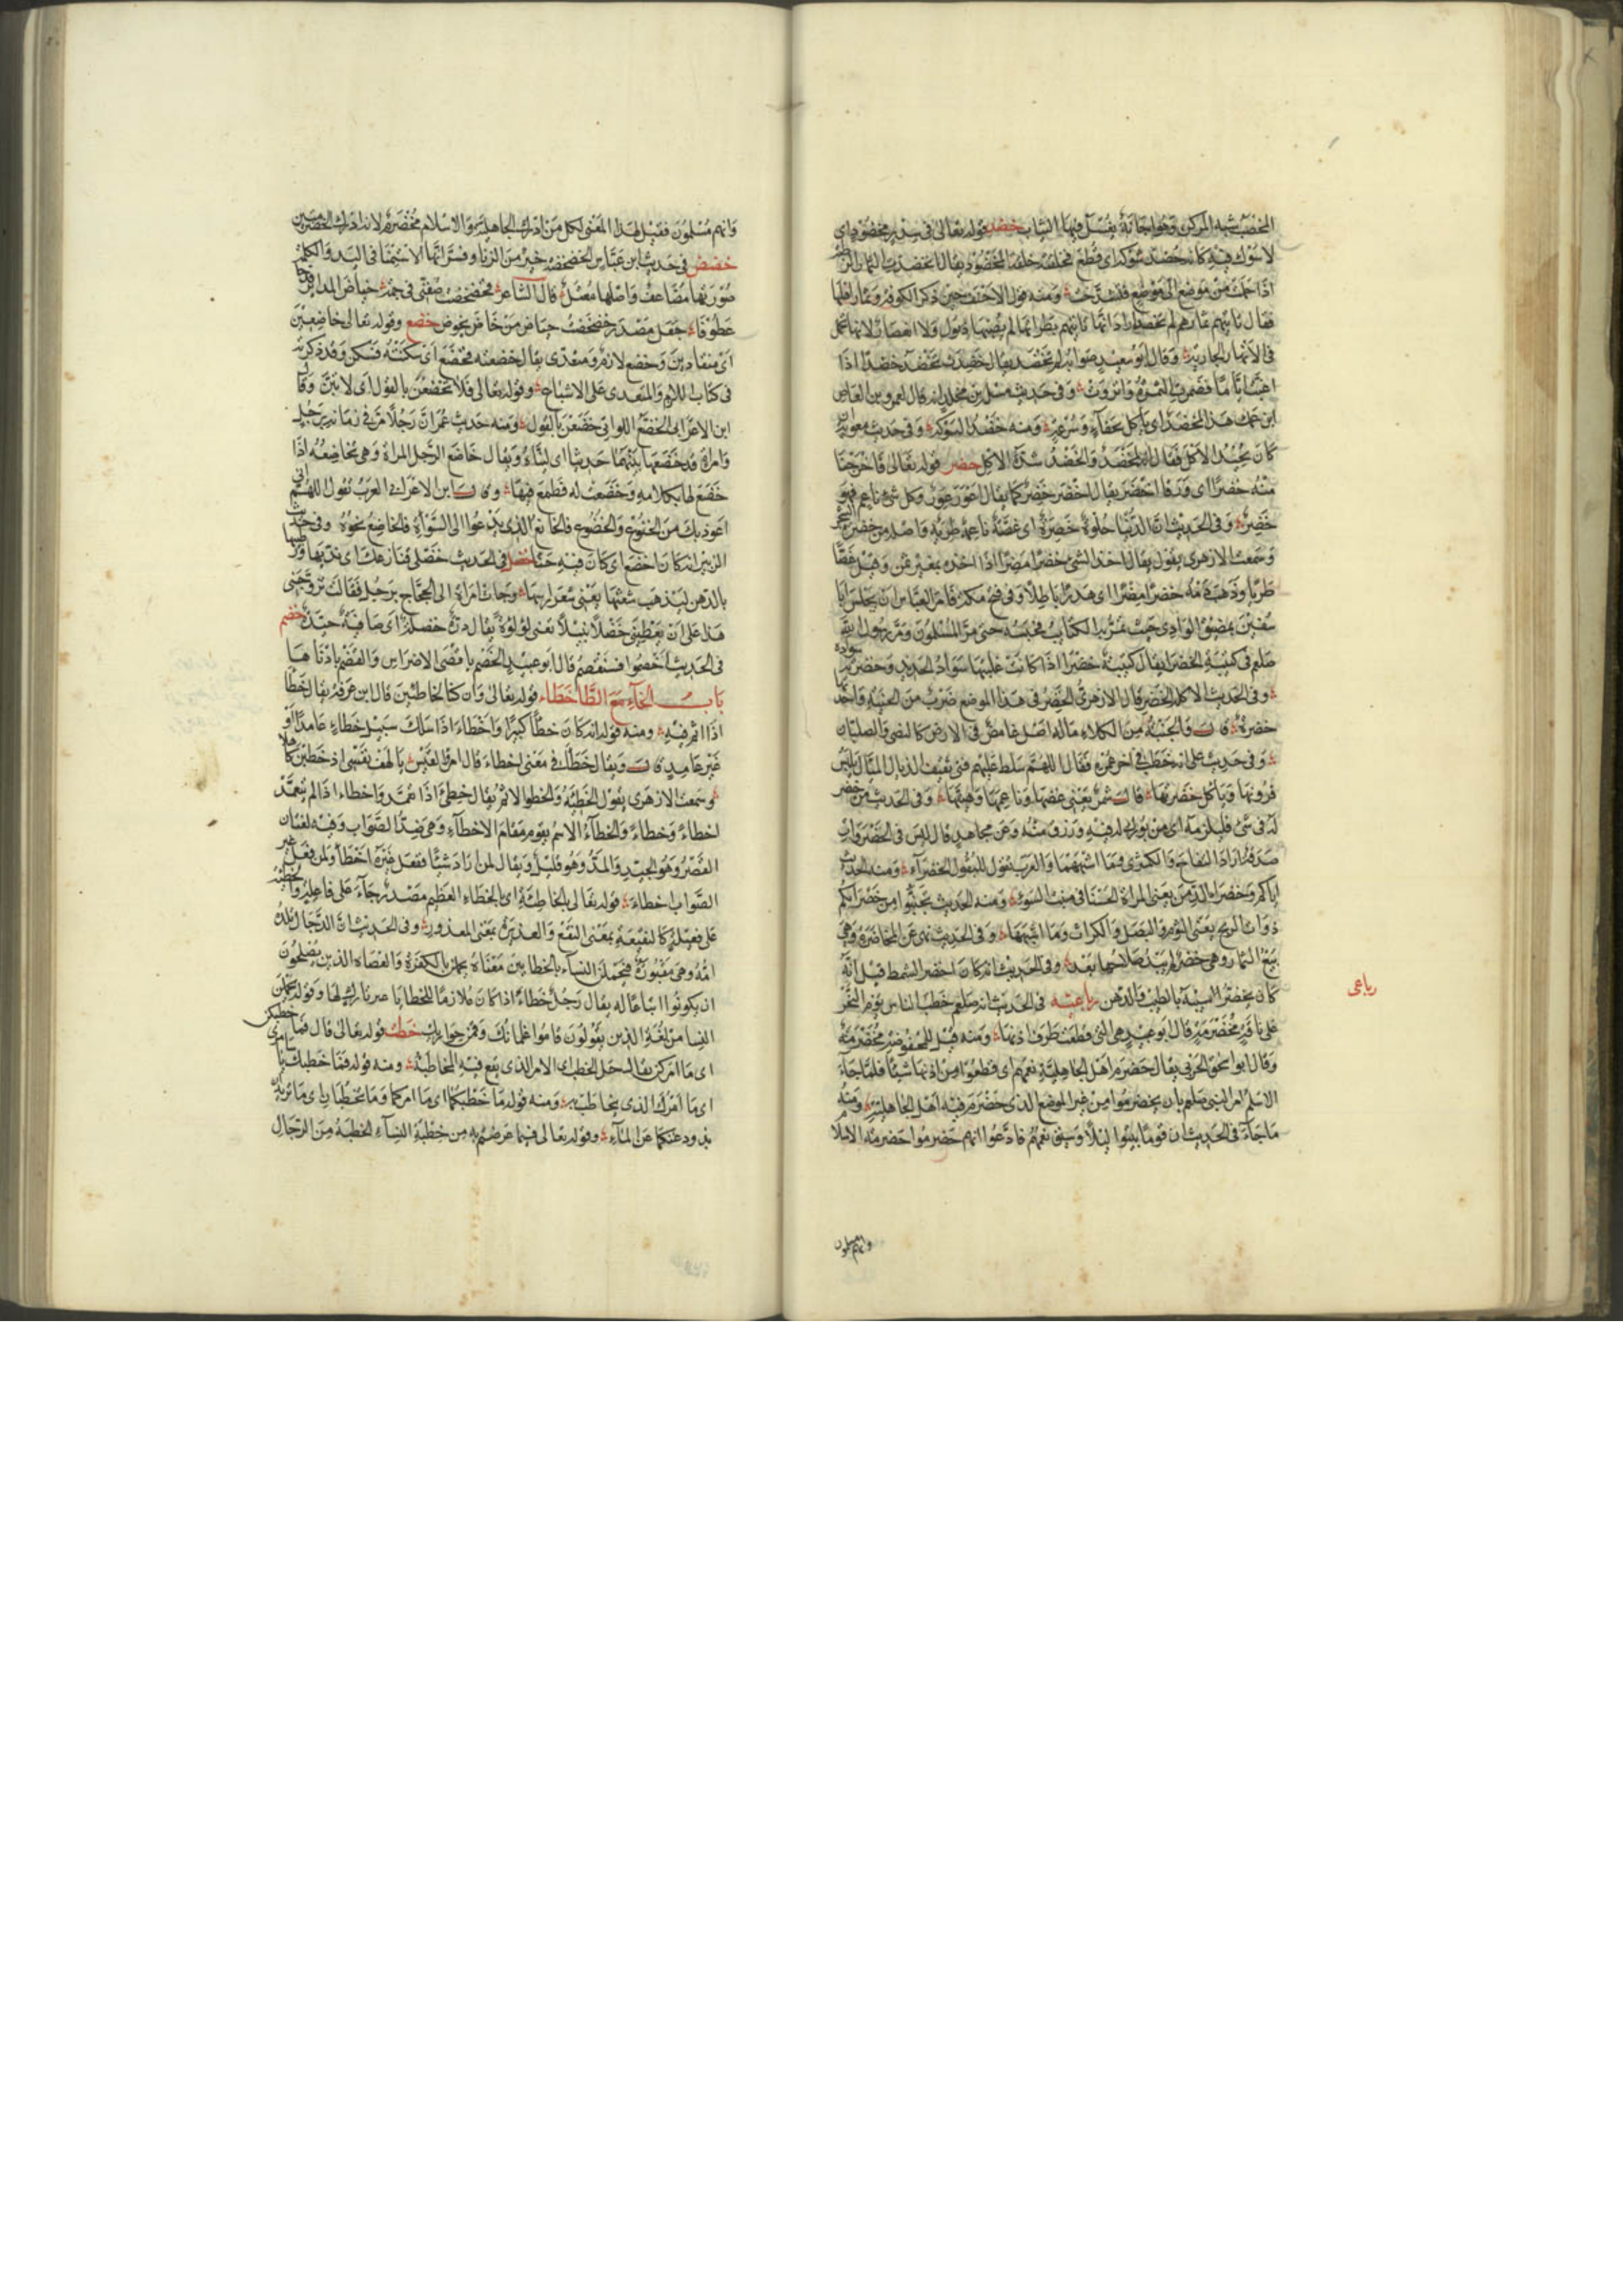 المخضب شبه المركن وهو اجانة يغسل فيها الثياب خضد قوله تعالى في سدر مخضود اى
لا شوك فيه كانه خضد شوكه اى قطع فخلقته خلقة المخضود يقال انخضدت الثمار الرطبة
اذا حملت من موضع الى موضع فتشدخت ومنه قول الاحنف حين ذكر الكوفة وثمار اهلها
فقال تاتيهم ثمارهم لم تخضد اراد انها تاتيهم بطراتها لم يصبها ذبول ولا انعصار لانها تحمل
في الانهار الجارية وقال ابو سعيد صوابه لم تخضد يقال خضدت تخضد خضدا اذا
غبت اياما فضمرت الثمرة وانزوت وفي حديث مسلمة بن مخلد انه قال لعمرو بن العاص
ابن عمك هذا المخضد اى ياكل بجفاء وسرعة ومنه خضد الشوكة وفي حديث معوية
كان يجيد الاكل فقال انه لمخضد والخضد شدة الاكل خضر قوله تعالى فاخرجنا
منه خضرا اى ورقا اخضر يقال اخضر خضر كما يقال اعور عور وكل شئ ناعم فهو
خضر وفي الحديث ان الدنيا حلوة خضرة اى غضة ناعمة طرية واصله من خضرة الشجر
وسمعت الازهرى يقول يقال اخذ الشئ خضرا مضرا اذا اخذه بغير ثمن وقيل غضا
طريا وذهب دمه خضرا مضرا اى هدرا باطلا وفي فتح مكة فامر العباس ان يحبس ابا
سفين بمضيق الوادى حيث تمر به الكتايب فحبسه حتى مر المسلمون ومر رسول الله
صلعم في كتيبته الخضرا يقال كتيبة خضرا اذا كانت عليها سواد الحديد وخضرته سواده
وفي الحديث الا اكلة الخضر قال الازهرى الخضر في هذا الموضع ضرب من الجنبة واحدتها
خضرة قال والجنبة من الكلاء ماله اصل غامض في الارض كالنصى والصليان
وفي حديث على انه خطب في اخر عمره فقال اللهم سلط عليهم فتى ثقيف الذيال الميال يلبس
فروتها وياكل خضرتها قال شمر يعنى غضها وناعمها وهنيئها وفي الحديث من خضر
له في شئ فليلزمه اى من بورك له فيه ورزق منه وعن مجاهد قال ليس في الخضروات
صدقة اراد التفاح والكمثرى وما اشبههما والعرب تقول للبقول الخضراء ومنه الحديث
اياكم وخضراء الدمن يعنى المراة الحسنا في منبت السوء ومنه الحديث تجنبوا من خضرائكم
ذوات الريح يعنى الثوم والبصل والكراث وما اشبهها وفي الحديث نهى عن المخاضرة وهى
بيع الثمار وهى خضر لم يبد صلاحها بعد وفي الحديث انه كان اخضر الشمط قيل انه
كان يخضر الشيبة بالطيب والدهن رباعيته في الحديث انه صلعم خطب الناس يوم النحر
رباعى
على ناقة مخضرمة قال ابو عبيد هى التى قطعت طرف اذنها ومنه قيل للمخفوضة مخضرمة
وقال ابو اسحق الحربى يقال خضرم اهل الجاهلية نعمهم اى قطعوا من اذنها شيئا فلما جاء
الاسلام امر النبى صلعم بان يخضرموا من غير الموضع الذى خضرم فيه اهل الجاهلية ومنه
ما جاء في الحديث ان قوما بيتوا ليلا وسيق نعمهم فادعوا انهم خضرموا خضرمة الاسلام
وانهم مسلمون
وانهم مسلمون فقيل لهذا المعنى لكل من ادرك الجاهلية والاسلام مخضرم لانه ادرك الخضرمتين
خضخض في حديث ابن عباس الخضخضة خير من الزنا وفسر انها الاستمنا في اليد والكلمة
صورتها مضاعف واصلها معتل قال الشاعر فخضخضت صفنى في جمه خياض المدابر قدحا
عطوفا جعل مصدر خضخضت خياض من خاض يخوض خضع وقوله تعالى خاضعين
اى منقادين وخضع لازم ومتعدى يقال خضعته فخضع اى سكنته فسكن وقد ذكرته
في كتاب اللازم والمتعدى على الاشباع وقوله تعالى فلا تخضعن بالقول اى لا تلن وقال
ابن الاعرابى الخضع اللواتى خضعن بالقول ومنه حديث عمر ان رجلا مر في زمانه برجل
وامراة قد خضعا بينهما حديثا اى لينا ويقال خاضع الرجل المراة وهى تخاضعه اذا
خضع لها بكلامه وخضعت له فطمع فيها وقال ابن الاعرابى العرب تقول اللهم انى
اعوذ بك من الخنوع والخضوع فالخانع الذى يدعوا الى السوأة فالخاضع نحوه وفي حديث
الزبير انه كان اخضع اى كان فيه جنا خضل في الحديث خضلى قنازعك اى نديها ورطبيها
بالدهن ليذهب شعثها يعنى شعر راسها وجات امراة الى الحجاج برجل فقالت تزوجنى
هذا على ان يعطينى خضلا نبيلا تعنى لؤلؤة يقال درة خضلة اى صافية جيدة خضم
في الحديث اخضموا فسنقضم قال ابو عبيد الخضم باقصى الاضراس والقضم بادناها
باب الخاء مع الطا خطاء قوله تعالى وان كنا لخاطئين قال ابن عرفة يقال خطأ
اذا اثم فيه ومنه قوله انه كان خطأ كبيرا واخطاء اذا سلك سبيل خطاء عامدا او
غير عامد قال ويقال خطأ في معنى اخطاء قال امرؤ القيس يا لهف نفسى اذ خطئن كاهلا
وسمعت الازهرى يقول الخطيئة والخطوا الاثم يقال خطئ اذا تعمد واخطاء اذا لم يتعمد
اخطاء وخطاء والخطاء الاسم يقوم مقام الاخطاء وهى ضد الصواب وفيه لغتان
القصر وهو الجيد والمد وهو قليل ويقال لمن اراد شيئا ففعل غيره اخطأ ولمن فعل غير
الصواب اخطاء قوله تعالى بالخاطئة اى بالخطاء العظيم مصدر جاء على فاعلة والخطيئة
على فعيلة كالنفيعة بمعنى النفع والعذيرة بمعنى المعذور وفي الحديث ان الدجال تلده
امه وهى مقبورة فتحملن النساء بالخطائين معناه يحملن بالكفرة والعصاة الذين يصلحون
ان يكونوا اتباعا له يقال رجل خطاء اذا كان ملازما للخطايا غير تارك لها وقوله يحملن
النسا من لغة الذين يقولون قاموا غلمانك وقمن جواريك خطب قوله تعالى قال فما خطبكن
اى ما امركن يقال جل الخطب اى الامر الذى يقع فيه المخاطبة ومنه قوله فما خطبك يا سامرى
اى ما امرك الذى يخاطب به ومنه قوله ما خطبكما اى ما امركما وما تخطبان اى ما تريدان
بذودكما عن الماء وقوله تعالى فيما عرضتم به من خطبة النساء الخطبة من الرجال